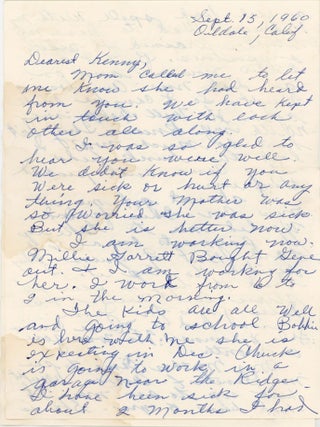 Sept. 15, 1960
Oildale, Calif.
Dearest Kenny,
Mom called me to let
me know she had heard
from you. We have kept
in touch with each
other all along.
I was so glad to
hear you were well.
We didnt know if you
were sick or hurt or any
thing. Your Mother was
so worried she was sick
But she is better now.
I am working now.
Millie Garrett Bought Gene
out. & I am working for
her. I work from 6 to
1 in the morning.
The kids are all well
and going to school Bobbie
is here with me she is
expecting in Dec. Chuck
is going to work in a
garage near the Ridge.
I have been sick for
about 2 months I had